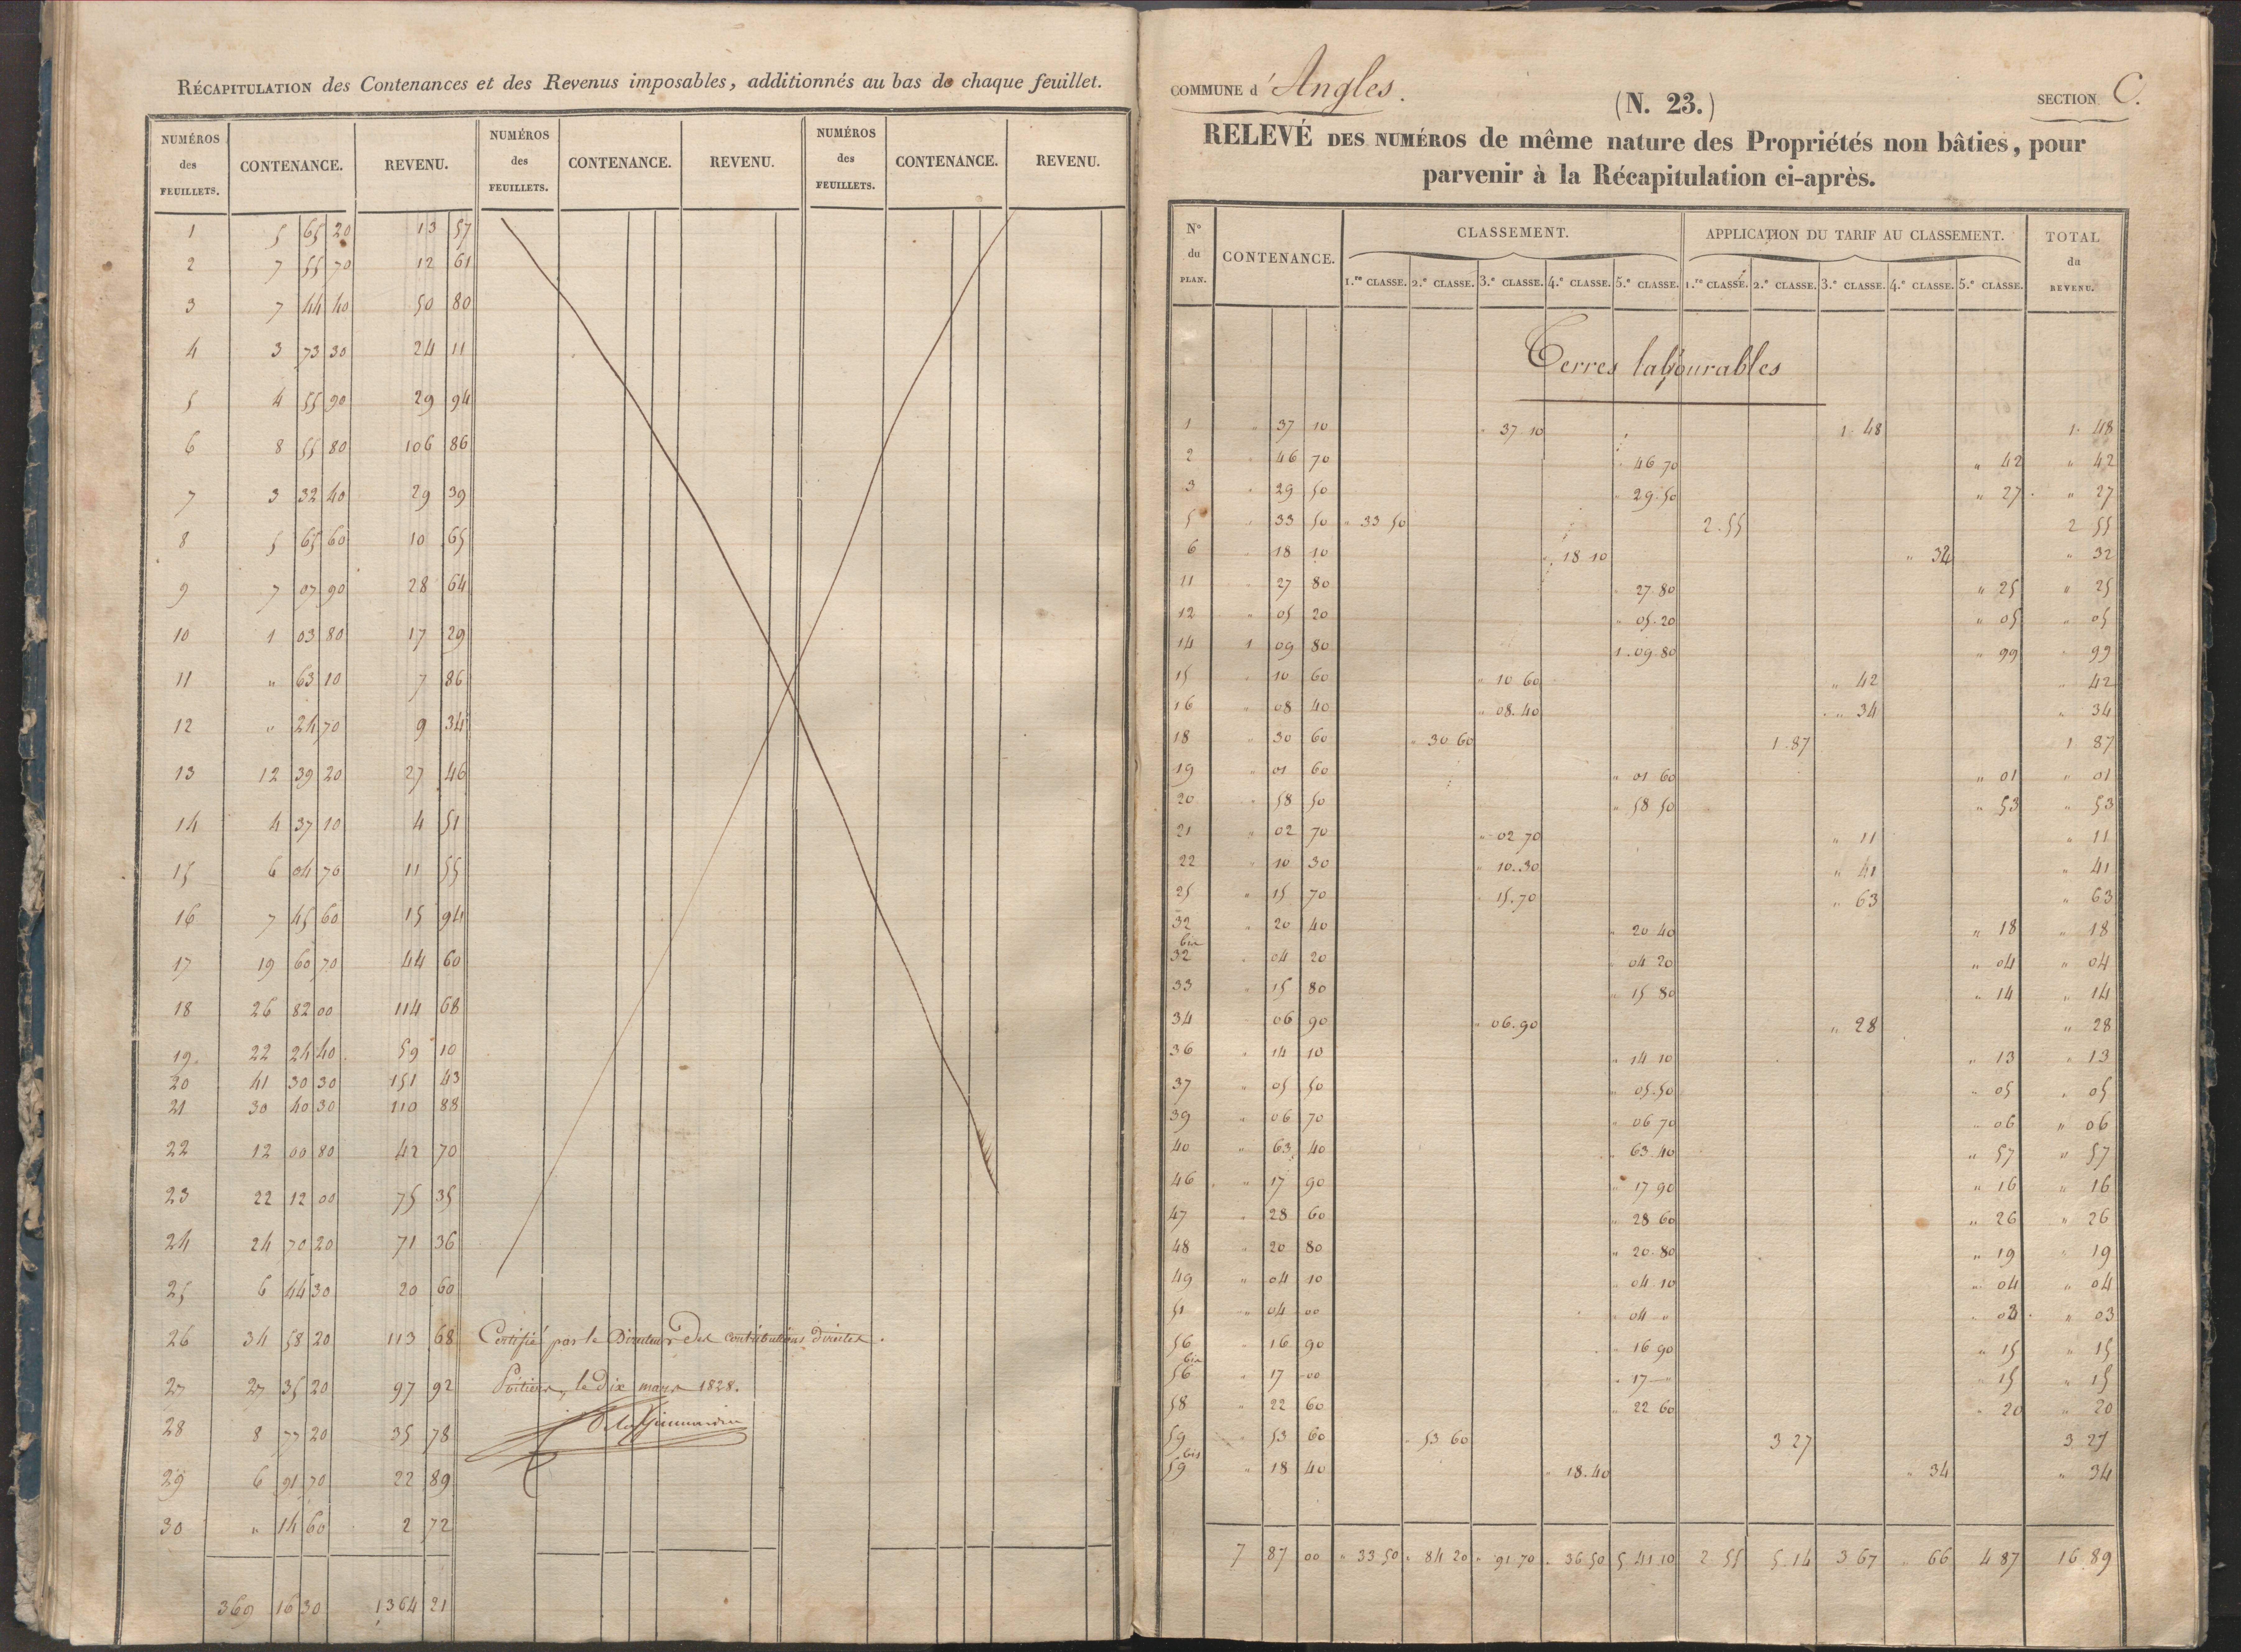 RÉCAPITULATION des Contenances et des Revenus imposables, additionnés au bas de chaque feuillet.
NUMÉROS des FEUILLETS. CONTENANCE. REVENU. NUMÉROS des FEUILLETS. CONTENANCE. REVENU. NUMÉROS des FEUILLETS. CONTENANCE. REVENU.
1 5 65 20 13 57
2 7 55 70 12 61
3 7 44 40 50 80
4 3 73 30 24 11
5 4 55 90 29 94
6 8 55 80 106 86
7 3 32 40 29 39
8 5 65 60 10 65
9 7 07 90 28 64
10 1 03 80 17 29
11 " 63 10 7 86
12 " 24 70 9 34
13 12 39 20 27 46
14 4 37 10 4 51
15 6 04 70 11 55
16 7 45 60 15 94
17 19 60 70 44 60
18 26 82 00 114 68
19 22 24 40 59 10
20 41 30 30 151 43
21 30 40 30 110 88
22 12 00 80 42 70
23 22 12 00 75 35
24 24 70 20 71 36
25 6 44 30 20 60
26 34 58 20 113 68
27 27 35 20 97 92
28 8 77 20 35 78
29 6 91 70 22 89
30 " 14 60 2 72
369 16 30 1364 21
Certifié par le Directeur des contributions directes.
Poitiers, le dix mars 1828.
COMMUNE d'Angles.
(N. 23.)
SECTION C.
RELEVÉ DES NUMÉROS de même nature des Propriétés non bâties, pour
parvenir à la Récapitulation ci-après.
N° du PLAN. CONTENANCE. CLASSEMENT. APPLICATION DU TARIF AU CLASSEMENT. TOTAL du REVENU.
1.re CLASSE. 2.e CLASSE. 3.e CLASSE. 4.e CLASSE. 5.e CLASSE. 1.re CLASSE. 2.e CLASSE. 3.e CLASSE. 4.e CLASSE. 5.e CLASSE.
Terres labourables
1 " 37 10 " 37 10 1. 48 1. 48
2 " 46 70 " 46 70 " 42 " 42
3 " 29 50 " 29.50 " 27 " 27
5 " 33 50 " 33 50 2.55 2 55
6 " 18 10 " 18 10 " 32 " 32
11 " 27 80 " 27.80 " 25 " 25
12 " 05 20 " 05.20 " 05 " 05
14 1 09 80 1.09.80 " 99 " 99
15 " 10 60 " 10 60 " 42 " 42
16 " 08 40 " 08.40 " 34 " 34
18 " 30 60 " 30 60 1.87 1 87
19 " 01 60 " 01 60 " 01 " 01
20 " 58 50 " 58 50 " 53 " 53
21 " 02 70 " 02 70 " 11 " 11
22 " 10 30 " 10.30 " 41 " 41
25 " 15 70 " 15.70 " 63 " 63
32 " 20 40 " 20 40 " 18 " 18
32 bis " 04 20 " 04 20 " 04 " 04
33 " 15 80 " 15 80 " 14 " 14
34 06 90 " 06.90 " 28 " 28
36 " 14 10 " 14 10 " 13 " 13
37 " 05 50 " 05.50 " 05 " 05
39 " 06 70 " 06 70 " 06 " 06
40 " 63 40 " 63.40 " 57 " 57
46 " 17 90 " 17 90 " 16 " 16
47 " 28 60 " 28 60 " 26 " 26
48 " 20 80 " 20.80 " 19 " 19
49 " 04 10 " 04.10 " 04 " 04
51 " 04 00 " 04 " " 03 " 03
56 " 16 90 " 16 90 " 15 " 15
56 bis " 17 00 " 17 " " 15 " 15
58 " 22 60 " 22 60 " 20 " 20
59 " 53 60 " 53 60 3 27 3 27
59 bis " 18 40 " 18.40 " 34 " 34
7 87 00 " 33 50 " 84 20 " 91 70 " 36 50 5 41 10 2 55 5.14 3 67 " 66 4 87 16 89